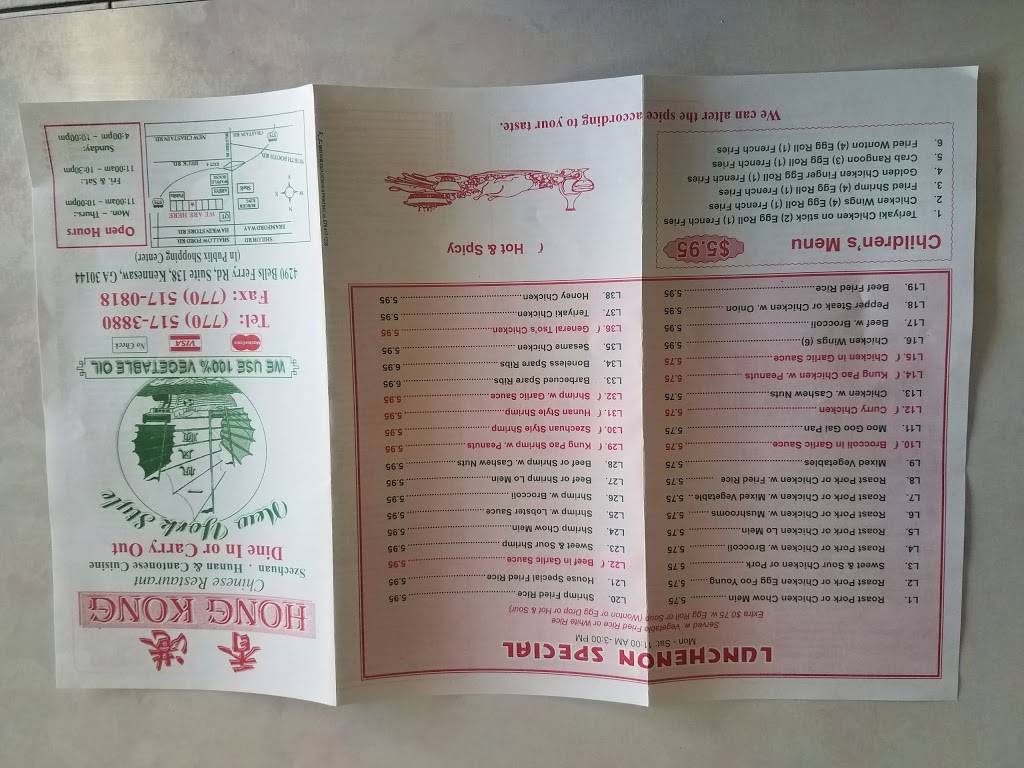 LUNCHENON SPECIAL
Mon - Sat: 11:00 AM -3:00 PM
Served w. Vegetable Fried Rice or White Rice
Extra $0.75 w. Egg Roll or Soup (Wonton or Egg Drop or Hot & Sour)
L1. Roast Pork or Chicken Chow Mein 5.75
L2. Roast Pork or Chicken Egg Foo Young 5.75
L3. Sweet & Sour Chicken or Pork 5.75
L4. Roast Pork or Chicken w. Broccoli 5.75
L5. Roast Pork or Chicken Lo Mein 5.75
L6. Roast Pork or Chicken w. Mushrooms 5.75
L7. Roast Pork or Chicken w. Mixed Vegetable 5.75
L8. Roast Pork or Chicken w. Fried Rice 5.75
L9. Mixed Vegetables 5.75
L10. Broccoli in Garlic Sauce 5.75
L11. Moo Goo Gai Pan 5.75
L12. Curry Chicken 5.75
L13. Chicken w. Cashew Nuts 5.75
L14. Kung Pao Chicken w. Peanuts 5.75
L15. Chicken in Garlic Sauce 5.75
L16. Chicken Wings (6) 5.95
L17. Beef w. Broccoli 5.95
L18. Pepper Steak or Chicken w. Onion 5.95
L19. Beef Fried Rice 5.95
L20. Shrimp Fried Rice 5.95
L21. House Special Fried Rice 5.95
L22. Beef in Garlic Sauce 5.95
L23. Sweet & Sour Shrimp 5.95
L24. Shrimp Chow Mein 5.95
L25. Shrimp w. Lobster Sauce 5.95
L26. Shrimp w. Broccoli 5.95
L27. Beef or Shrimp Lo Mein 5.95
L28. Beef or Shrimp w. Cashew Nuts 5.95
L29. Kung Pao Shrimp w. Peanuts 5.95
L30. Szechuan Style Shrimp 5.95
L31. Hunan Style Shrimp 5.95
L32. Shrimp w. Garlic Sauce 5.95
L33. Barbecued Spare Ribs 6.95
L34. Boneless Spare Ribs 6.95
L35. Sesame Chicken 5.95
L36. General Tso's Chicken 5.95
L37. Teriyaki Chicken 5.95
L38. Honey Chicken 5.95
Children's Menu
$5.95
1. Teriyaki Chicken on stick (2) Egg Roll (1) French Fries
2. Chicken Wings (4) Egg Roll (1) French Fries
3. Fried Shrimp (4) Egg Roll (1) French Fries
4. Golden Chicken Finger Egg Roll (1) French Fries
5. Crab Rangoon (3) Egg Roll (1) French Fries
6. Fried Wonton (4) Egg Roll (1) French Fries
Hot & Spicy
We can alter the spice according to your taste.
香港
HONG KONG
Chinese Restaurant
Szechuan . Hunan & Cantonese Cuisine
Dine In or Carry Out
New York Style
一帆風順
WE USE 100% VEGETABLE OIL
MasterCard
VISA
No Check
Tel: (770) 517-3880
Fax: (770) 517-0818
4290 Bells Ferry Rd, Suite 138, Kennesaw, GA 30144
(In Publix Shopping Center)
SHILOH RD
SHALLOW FORD RD
HAWKINSTORE RD
WE ARE HERE
QT
BURGER KING
Publix
Shell
HECK RD
NORTH BOOTH RD
NEW CHASTAIN RD
CHASTAIN RD
N
S
E
W
Open Hours
Mon. - Thurs.:
11:00am - 10:00pm
Fri. & Sat.:
11:00am - 10:30pm
Sunday:
4:00pm - 10:00pm